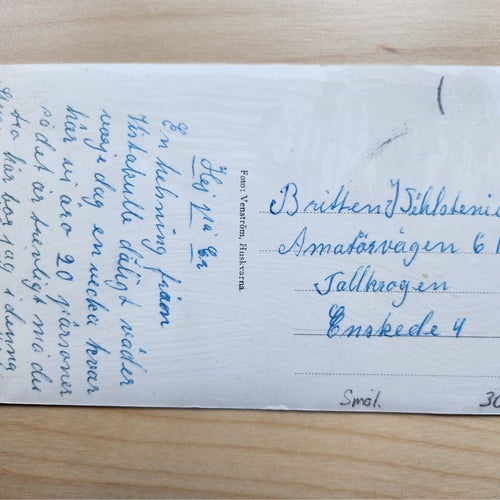 Hej på Er
En helsning från
Vistakulle dåligt väder
varje dag en vecka kvar
här vi äro 20 pärsoner
så det är trevligt må du
tro här bor jag i denna
Foto: Venström, Huskvarna
Britten
Amatörvägen 61
Tallkrogen
Enskede 4
Smål.
30